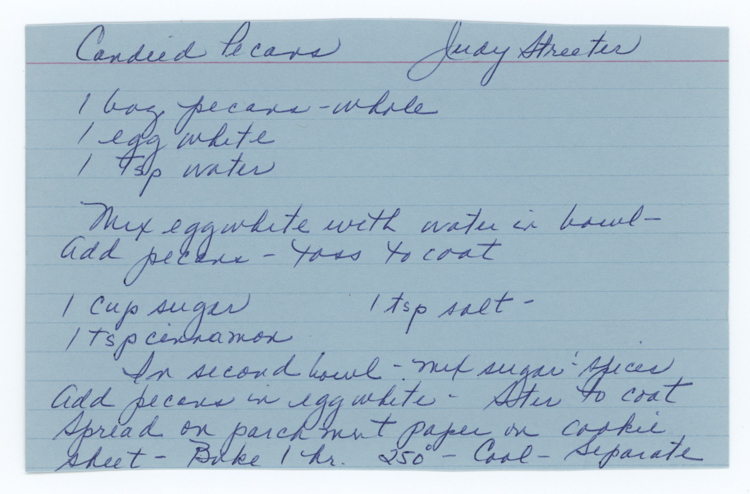 Candied Pecans Judy Streeter
1 bag pecans - whole
1 egg white
1 tsp water
Mix egg white with water in bowl -
Add pecans - toss to coat
1 cup sugar 1 tsp salt -
1 tsp cinnamon
In second bowl - mix sugar - spices
Add pecans in egg white - Stir to coat
Spread on parchment paper on cookie
sheet - Bake 1 hr. 250° - Cool - Separate